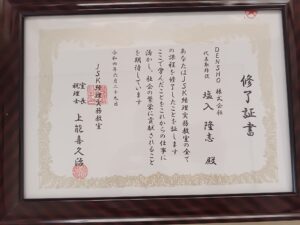 修了証書
DENSHO 株式会社
代表取締役
塩入 隆志 殿
あなたはJSK経理実務教室の全て
の課程を修了したことを証します
ここで学んだことをこれからの仕事に
活かし、社会の繁栄に貢献されること
を期待しています
令和四年六月二十九日
JSK経理実務教室
室長
税理士
上能喜久治